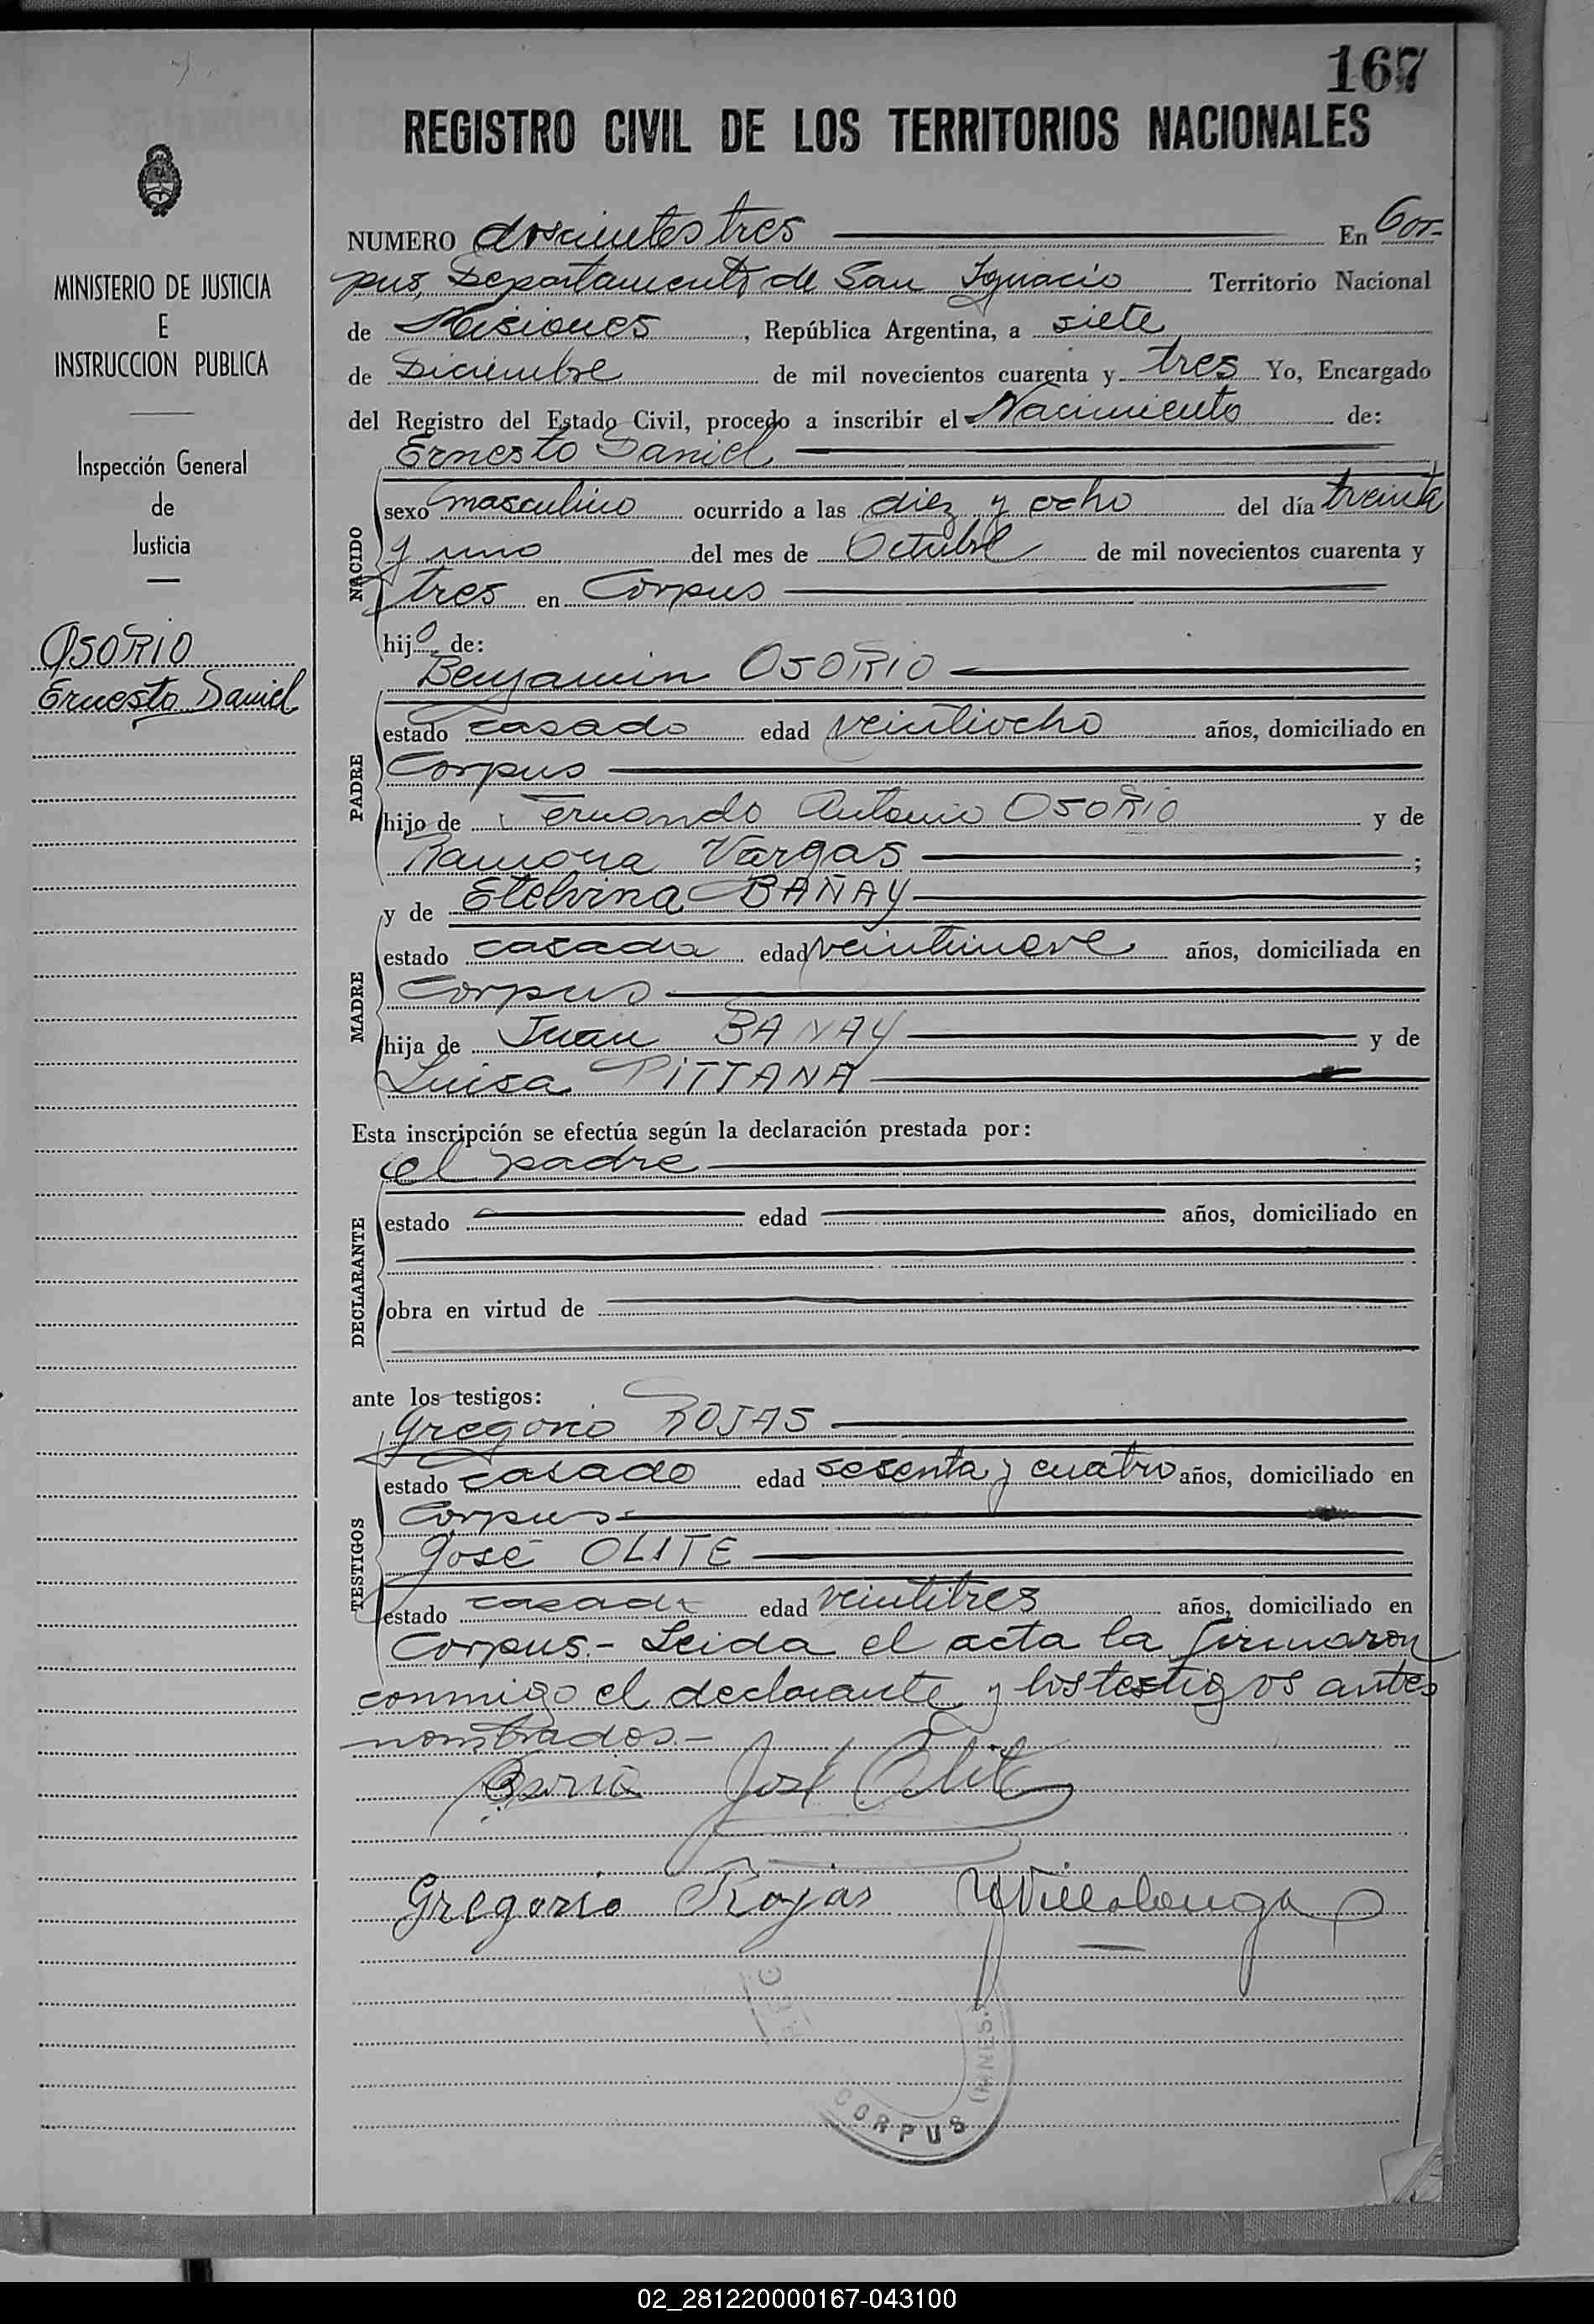 167
REGISTRO CIVIL DE LOS TERRITORIOS NACIONALES
MINISTERIO DE JUSTICIA
E
INSTRUCCION PUBLICA
Inspección General
de
Justicia
OSORIO
Ernesto Daniel
NUMERO doscientos tres En Cor-
pus, Departamento de San Ignacio Territorio Nacional
de Misiones, República Argentina, a siete
de Diciembre de mil novecientos cuarenta y tres Yo, Encargado
del Registro del Estado Civil, procedo a inscribir el Nacimiento de:
Ernesto Daniel
NACIDO
sexo masculino ocurrido a las diez y ocho del día treinta
y uno del mes de Octubre de mil novecientos cuarenta y
tres en Corpus
hijo de:
Benjamin OSORIO
PADRE
estado casado edad veintiocho años, domiciliado en
Corpus
hijo de Fernando Antonio OSORIO y de
Ramona Vargas ;
y de Etelvina BAÑAY
MADRE
estado casada edad veintinueve años, domiciliada en
Corpus
hija de Juan BANAY y de
Luisa PITTANA
Esta inscripción se efectúa según la declaración prestada por:
el padre
DECLARANTE
estado edad años, domiciliado en
obra en virtud de
ante los testigos:
Gregorio ROJAS
TESTIGOS
estado casado edad sesenta y cuatro años, domiciliado en
Corpus
José OLITE
estado casado edad veintitres años, domiciliado en
Corpus.- Leida el acta la firmaron
conmigo el declarante y los testigos antes
nombrados.-
José Olite
Gregorio Rojas Villalonga
CORPUS (MNES.)
02_281220000167-043100